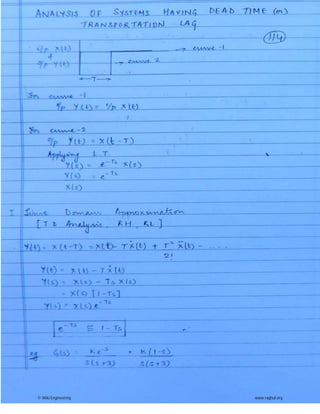 ANALYSIS OF SYSTEMS HAVING DEAD TIME (or)
TRANSPORTATION LAG
114
i/p x(t)
&
o/p y(t)
curve -1
curve -2
T
For curve -1
o/p Y(t) = i/p X(t)
For curve -2
o/p Y(t) = X(t - T)
Applying L T
Y(s) = e^-Ts X(s)
Y(s) = e^-Ts
X(s)
I Time Domain Approximation
[T D Analysis, RH, RL]
Y(t) = X(t-T) = X(t) - TẊ(t) + T² Ẍ(t) - ....
2!
Y(t) = X(t) - TẊ(t)
Y(s) = X(s) - Ts X(s)
= X(s) [1-Ts]
Y(s) = X(s) e^-Ts
e^-Ts ≅ 1-Ts
eg G(s) = Ke^-s = K(1-s)
s(s+3) s(s+3)
© Wiki Engineering www.raghul.org